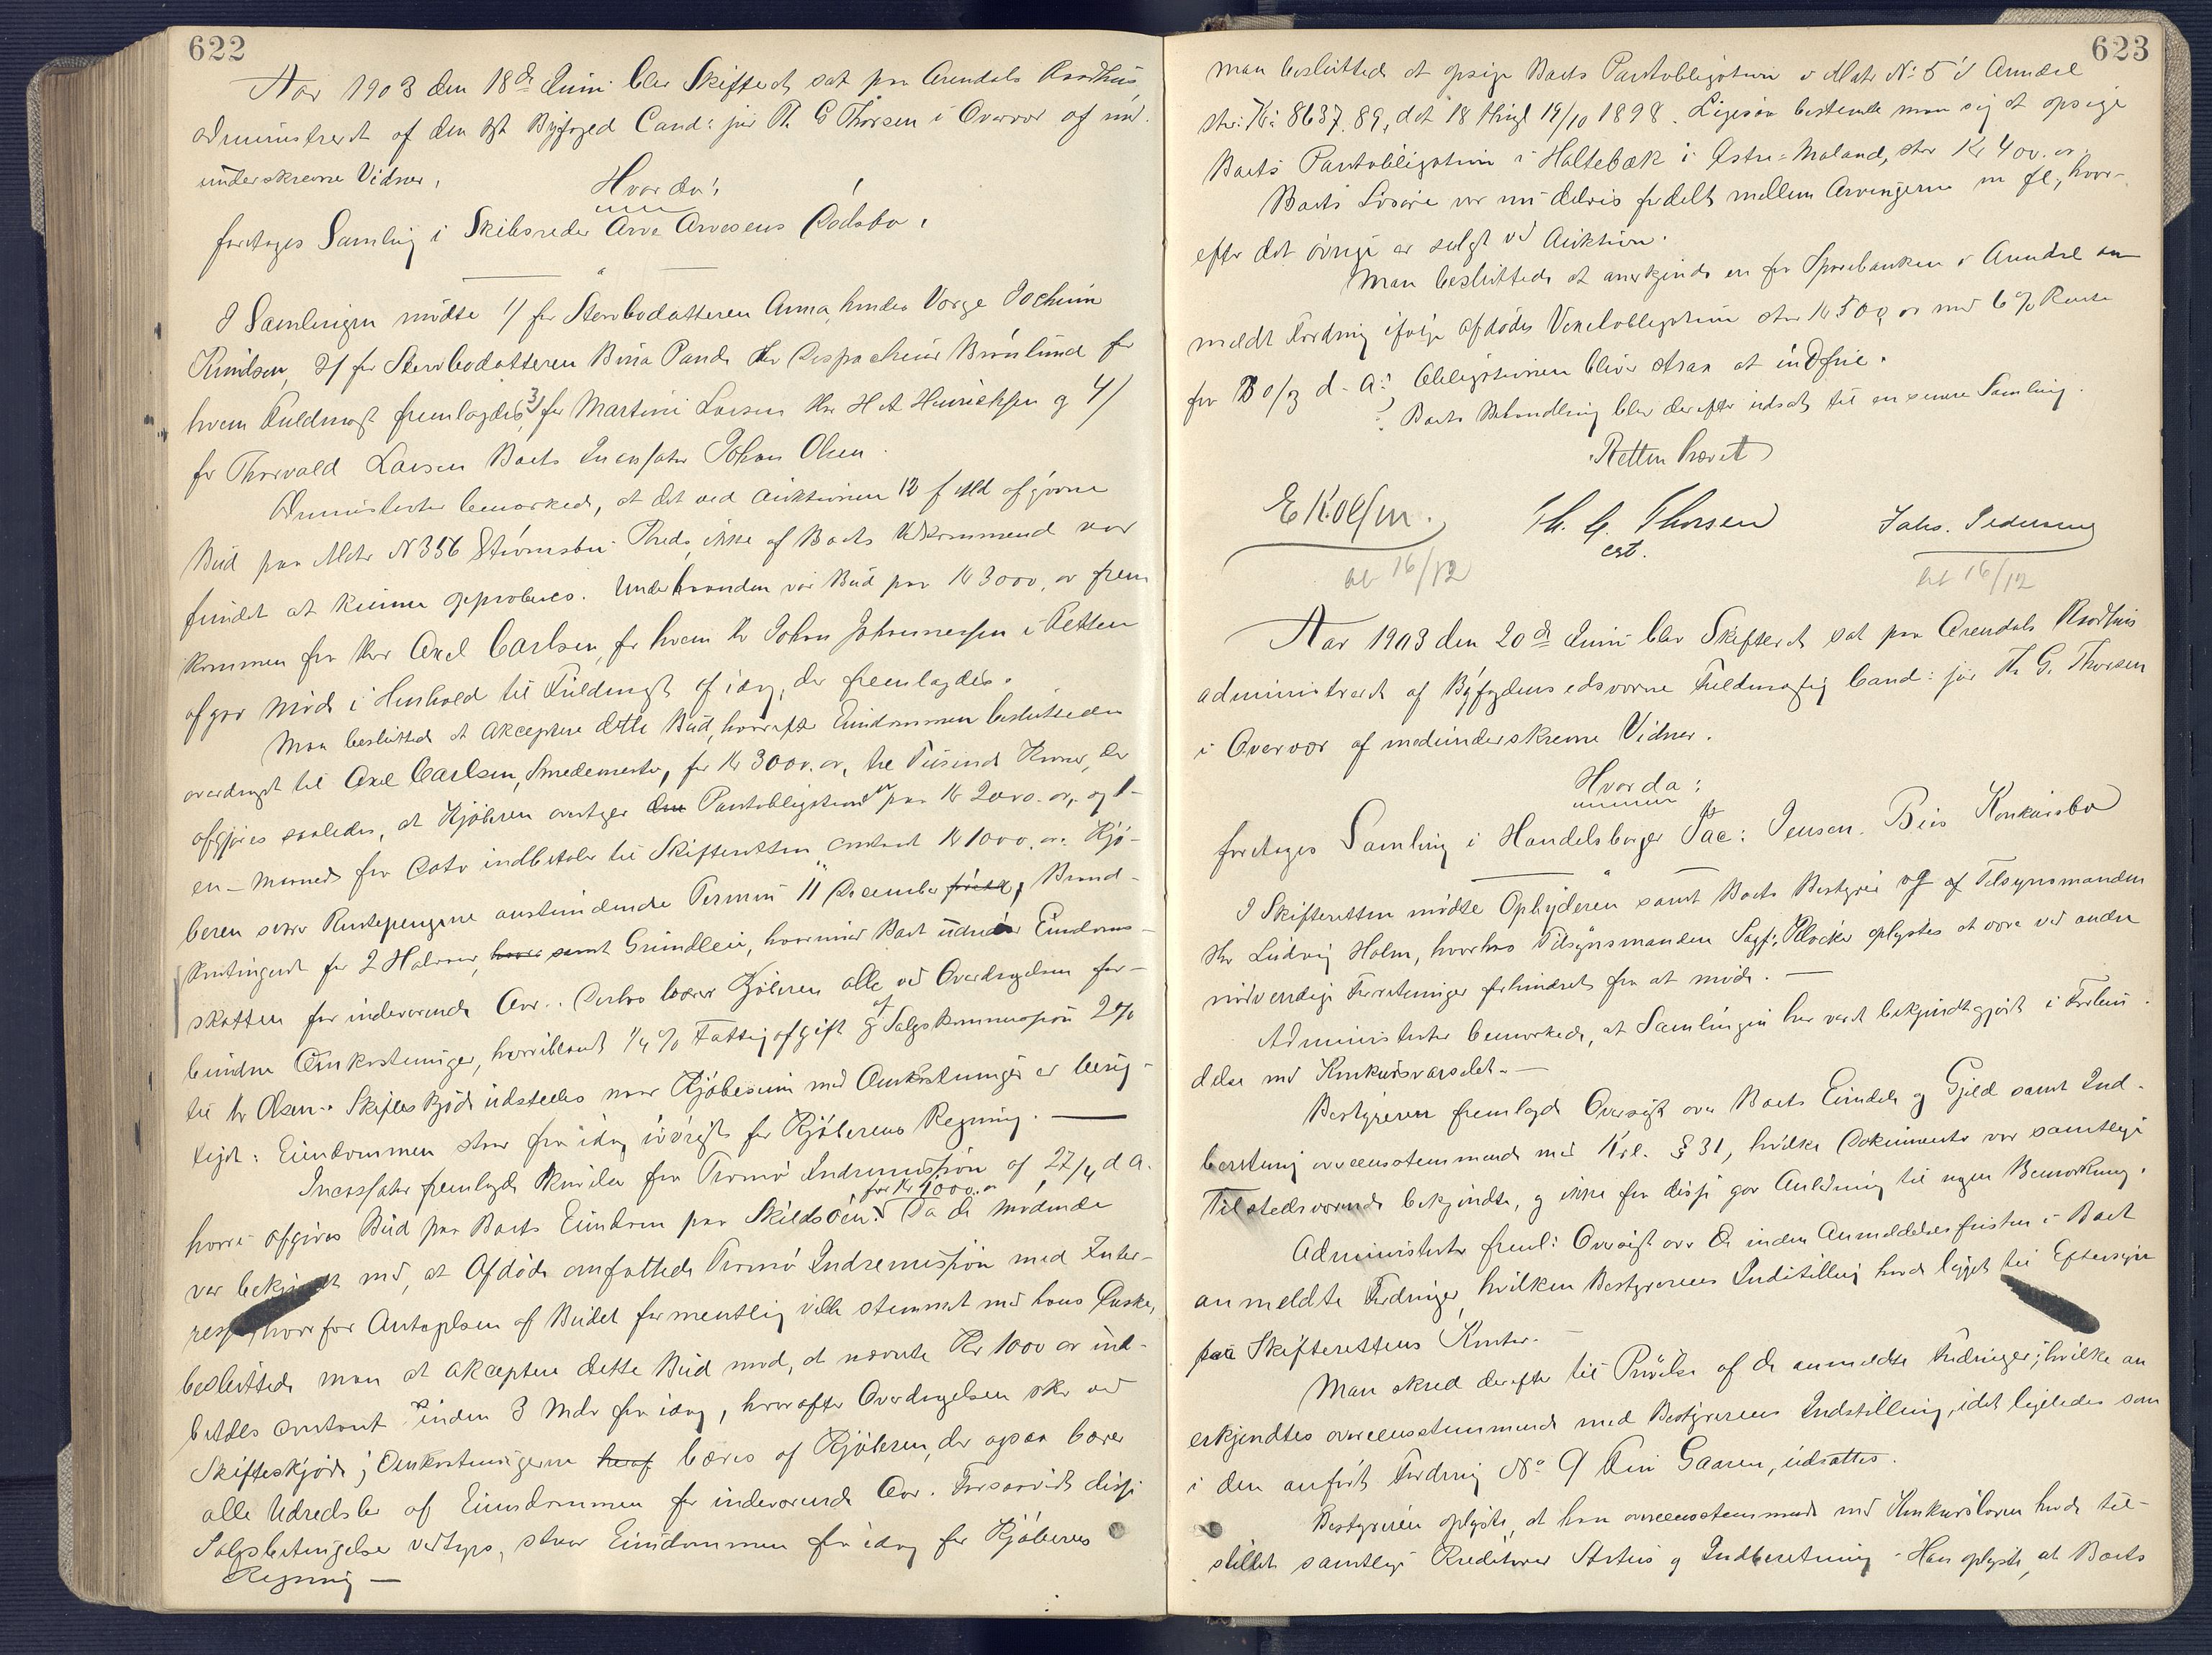 622
Aar 1903 den 18de Juni blev Skifteret sat paa Arendals Raadhus,
administreret af den cst Byfoged Cand: jur Th G Thorsen i Overvær af med-
underskrevne Vidner,
Hvorda:
foretoges Samling i Skibsreder Arve Arvesens Dødsbo,
I Samlingen mødte 1/ for Stervbodatteren Anna, hendes Værge Jochum
Knudsen, 2/ for Stervbodatteren Bina Pande Hr Dispacheur Brønlund for
hvem Fuldmagt fremlagdes, 3/ for Martini Larsen Hr H A Hinrichsen og 4/
for Thorvald Larsen Boets Incassator Johan Olsen.
Administrator bemærkede, at det ved Auktionen 12 f Md afgivne
Bud paa Matr N 356 Strømsbu Reds, ikke af Boets Vedkommende var
fundet at kunne approberes. Underhaanden var Bud paa Kr 3000.00 frem
kommen fra Hr Axel Carlsen, for hvem Hr Johan Johannessen i Retten
afgav Møde i Henhold til Fuldmagt af idag, der fremlagdes.
Man besluttede at akceptere dette Bud, hvorefter Eiendommen besluttedes
overdraget til Axel Carlsen, Smedemester, for Kr 3000.00, tre Tusinde Kroner, der
afgjøres saaledes, at Kjøberen overtager den Pantobligation paa Kr 2000.00, og 1-
en - Maaned fra Dato indbetaler til Skifteretten contant Kr 1000.00. Kjø-
beren svarer Rentepengene anstundende Termin 11 December først, Brand-
kontingent for 2 Halvaar, samt Grundleie, hvorimod Boet udreder Eiendoms-
skatten for indeværende Aar. Desuden bærer Kjøberen alle ved Overdragelsen for-
bundne Omkostninger, hvoriblandt 1/4 % Fattigafgift og af Salgskommission 2%
til Hr Olsen. Skifteskjøde udstedes naar Kjøbesum med Omkostninger er berig-
tiget. Eiendommen staar fra idag iøvrigt for Kjøberens Regning.
Incassator fremlagde Skrivelse fra Tromø Indremission af 27/4 d A.
hvori afgives Bud paa Boets Eiendom paa Skildsøen for Kr 1000.00. Da de mødende
var bekjendt med, at Afdøde omfattede Tromø Indremission med Inter-
resse, hvorfor Antagelsen af Budet formentlig vilde stemmet med hans Ønske,
besluttede man at akceptere dette Bud mod, at nævnte Kr 1000 00 ind-
betales contant inden 3 Mdr fra idag, hvorefter Overdragelsen sker ved
Skifteskjøde; Omkostningerne heraf bæres af Kjøberen, der ogsaa bærer
alle Udredsler af Eiendommen for indeværende Aar. Forsaavidt disse
Salgsbetingelser vedtages, staar Eiendommen fra idag for Kjøberens
Regning —
623
man besluttede at opsige Boets Pantobligation i Matr No: 5 i Arendal
stor: Kr: 8637.89, dat 18 thingl 19/10 1898. Ligesaa bestemte man sig at opsige
Boets Pantobligation i Holtebæk i Østre-Moland, stor Kr 400.00.
Boets Løsøre var nu delvis fordelt mellem Arvingerne m fl, hvor-
efter det øvrige er solgt ved Auktion.
Man besluttede at anerkjende en fra Sparebanken i Arendal an
meldt Fordring ifølge afdødes Vexelobligation stor Kr 500 00 med 6% Rente
fra 30/3 d. A: Obligationen bliver strax at indfrie.
Boets Behandling blev derefter udsat til en senere Samling.
Retten hævet
E K Olsen.
Th. G. Thorsen
cst.
Johs. Pedersen
bet 16/12
bet 16/12
Aar 1903 den 20de Juni blev Skifteret sat paa Arendals Raadhus
administreret af Byfogdens edsvorne Fuldmægtig Cand: jur Th. G. Thorsen
i Overvær af medunderskrevne Vidner.
Hvorda:
foretoges Samling i Handelsborger Jac: Jensen. Bies Konkursbo
I Skifteretten mødte Ophyderen samt Boets Bestyrer og af Tilsynsmanden
Hr Ludvig Holm, hvorhos Tilsynsmanden Sagf: Kløcker oplystes at være ved andre
nødvendige Forretninger forhindret fra at møde. —
Administrator bemærkede, at Samlingen har været bekjendtgjort i Forbin-
delse med Konkursvarslet. —
Bestyreren fremlagde Oversigt over Boets Eiendele og Gjeld samt Ind-
beretning overensstemmende med K.l. § 31, hvilke Dokumenter var samtlige
Tilstedeværende bekjendte, og ikke fra disse gav Anledning til nogen Bemærkning.
Administrator freml: Oversigt over de inden Anmeldelsesfristen i Boet
anmeldte Fordringer, hvilken Bestyrerens Indstilling havde ligget til Eftersyn
paa Skifterettens Kontor. —
Man skred derefter til Prøvelse af de anmeldte Fordringer; hvilke an
erkjendtes overensstemmende med Bestyrerens Indstilling, idet ligeledes som
i den anført Fordring No 9 fra Gaaren, udsattes.
Bestyreren oplyste, at han overensstemmende med Konkursloven havde til-
stillet samtlige Kreditorer Status og Indberetning - Han oplyste, at Boets